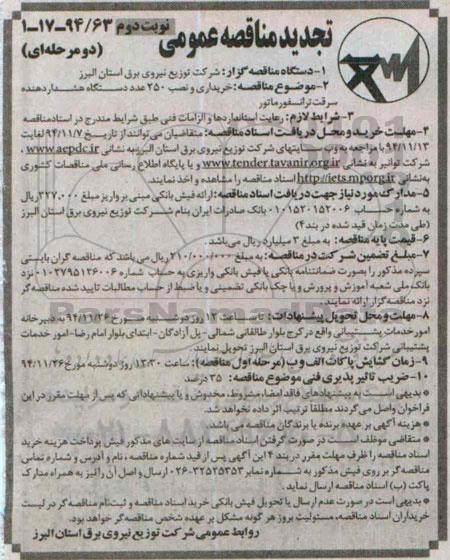 تجدید مناقصه عمومی
نوبت دوم ۹۴/۶۳-۱۷-۱
(دو مرحله‌ای)
۱-دستگاه مناقصه گزار: شرکت توزیع نیروی برق استان البرز
۲-موضوع مناقصه: خریداری و نصب ۲۵۰ عدد دستگاه هشداردهنده
سرقت ترانسفورماتور
۳-شرایط لازم: رعایت استانداردها و الزامات فنی طبق شرایط مندرج در اسناد مناقصه
۴-مهلت خرید و محل دریافت اسناد مناقصه: متقاضیان می‌توانند از تاریخ ۹۴/۱۱/۷ لغایت
۹۴/۱۱/۱۳ با مراجعه به وب سایتهای شرکت توزیع نیروی برق استان البرز به نشانی www.aepdc.ir و
شرکت توانیر به نشانی www.tender.tavanir.org.ir و یا پایگاه اطلاع رسانی ملی مناقصات کشوری
به نشانی http://iets.mporg.ir اسناد مناقصه را مشاهده و اخذ نمایند.
۵-مدارک مورد نیاز جهت دریافت اسناد مناقصه: ارائه فیش بانکی مبنی بر واریز مبلغ ۳۲۷,۰۰۰ ریال
به شماره حساب ۰۱۰۱۵۲۰۱۵۲۰۰۶ بانک صادرات ایران بنام شرکت توزیع نیروی برق استان البرز
(طی مدت زمان قید شده در بند۴)
۶-قیمت پایه مناقصه: به مبلغ ۳ میلیارد ریال می‌باشد.
۷-مبلغ تضمین شرکت در مناقصه: به مبلغ ۲۱۰,۰۰۰,۰۰۰ ریال می باشند که مناقصه گران بایستی
سپرده مذکور را بصورت ضمانتنامه بانکی یا فیش بانکی واریزی به حساب شماره ۰۱۰۳۷۹۵۱۲۶۰۰۶ نزد
بانک ملی شعبه آموزش و پرورش و یا چک بانکی تضمینی و یا ضبط از حساب مطالبات تایید شده مناقصه گر
نزد مناقصه گزار ارائه نمایند.
۸-مهلت و محل تحویل پیشنهادات: تا ساعت ۱۲ روز دوشنبه مورخ ۹۴/۱۱/۲۶ به دبیرخانه
امور خدمات پشتیبانی واقع در کرج بلوار طالقانی شمالی-پل آزادگان-ابتدای بلوار امام رضا-امور خدمات
پشتیبانی شرکت توزیع نیروی برق استان البرز تحویل نمایند.
۹-زمان گشایش پاکات الف و ب (مرحله اول مناقصه): ساعت ۱۳:۳۰ روز دوشنبه مورخ ۹۴/۱۱/۲۶
۱۰-ضریب تاثیر پذیری فنی موضوع مناقصه: ۳۵ درصد
* بدیهی است به پیشنهادهای فاقد امضاء، مشروط، مخدوش و یا پیشنهاداتی که پس از مهلت مقرر در این
فراخوان واصل می‌گردند مطلقا ترتیب اثر داده نخواهد شد.
* هزینه آگهی بر عهده برنده یا برندگان مناقصه می باشد.
* متقاضی موظف است در صورت گرفتن اسناد مناقصه از سایت های مذکور فیش پرداخت هزینه خرید
اسناد مناقصه را ظرف مهلت مقرر در بند ۴ این آگهی پس از قید شماره مناقصه، نام و آدرس و شماره تماس
مناقصه گر بر روی فیش مذکور به شماره نمابر ۳۲۵۲۵۳۵۳-۰۲۶ ارسال و اصل آن را نیز به همراه مدارک
پاکت (ب) اسناد مناقصه ارسال نماید.
* بدیهی است در صورت عدم ارسال یا تحویل فیش بانکی خرید اسناد مناقصه و ثبت نام مناقصه گر در لیست
خریداران اسناد مناقصه، مسئولیت بروز هر گونه مشکل بر عهده شخص مناقصه گر خواهد بود.
روابط عمومی شرکت توزیع نیروی برق استان البرز